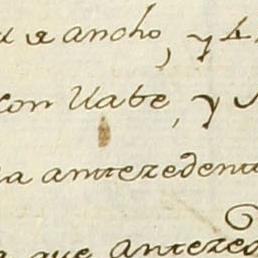 ancho, y 4
con llabe, y
la antezedente
que antezed